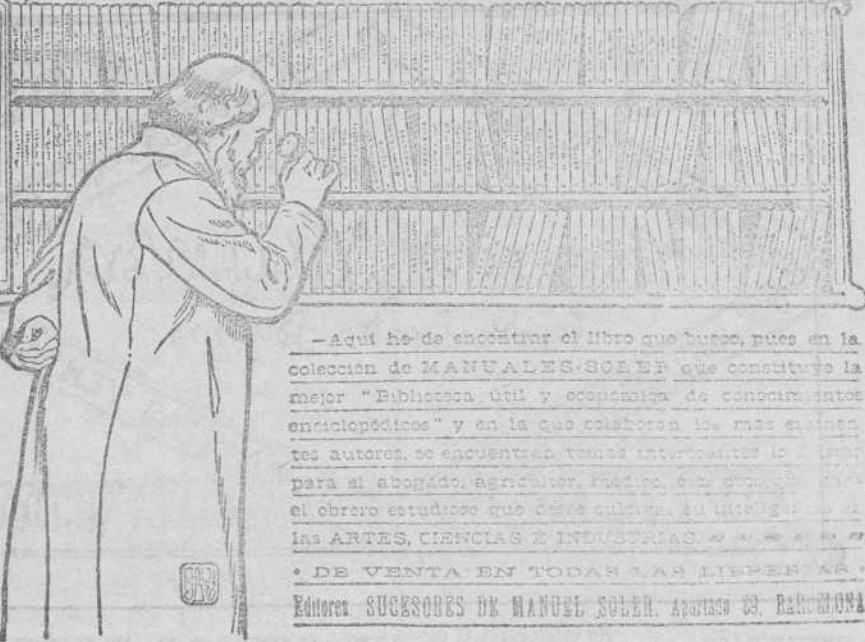 —Aquí he de encontrar el libro que busco, pues en la
colección de MANUALES-SOLER que constituye la
mejor "Biblioteca útil y económica de conocimientos
enciclopédicos" y en la que colaboran los más eminen
tes autores, se encuentran temas interesantes lo
para el abogado, agricultor, médico,
el obrero estudioso que desee cultivar su inteligencia
las ARTES, CIENCIAS É INDUSTRIAS.
• DE VENTA EN TODAS LAS LIBRERIAS •
Editores SUCESORES DE MANUEL SOLER. Apartado 89, BARCELONA